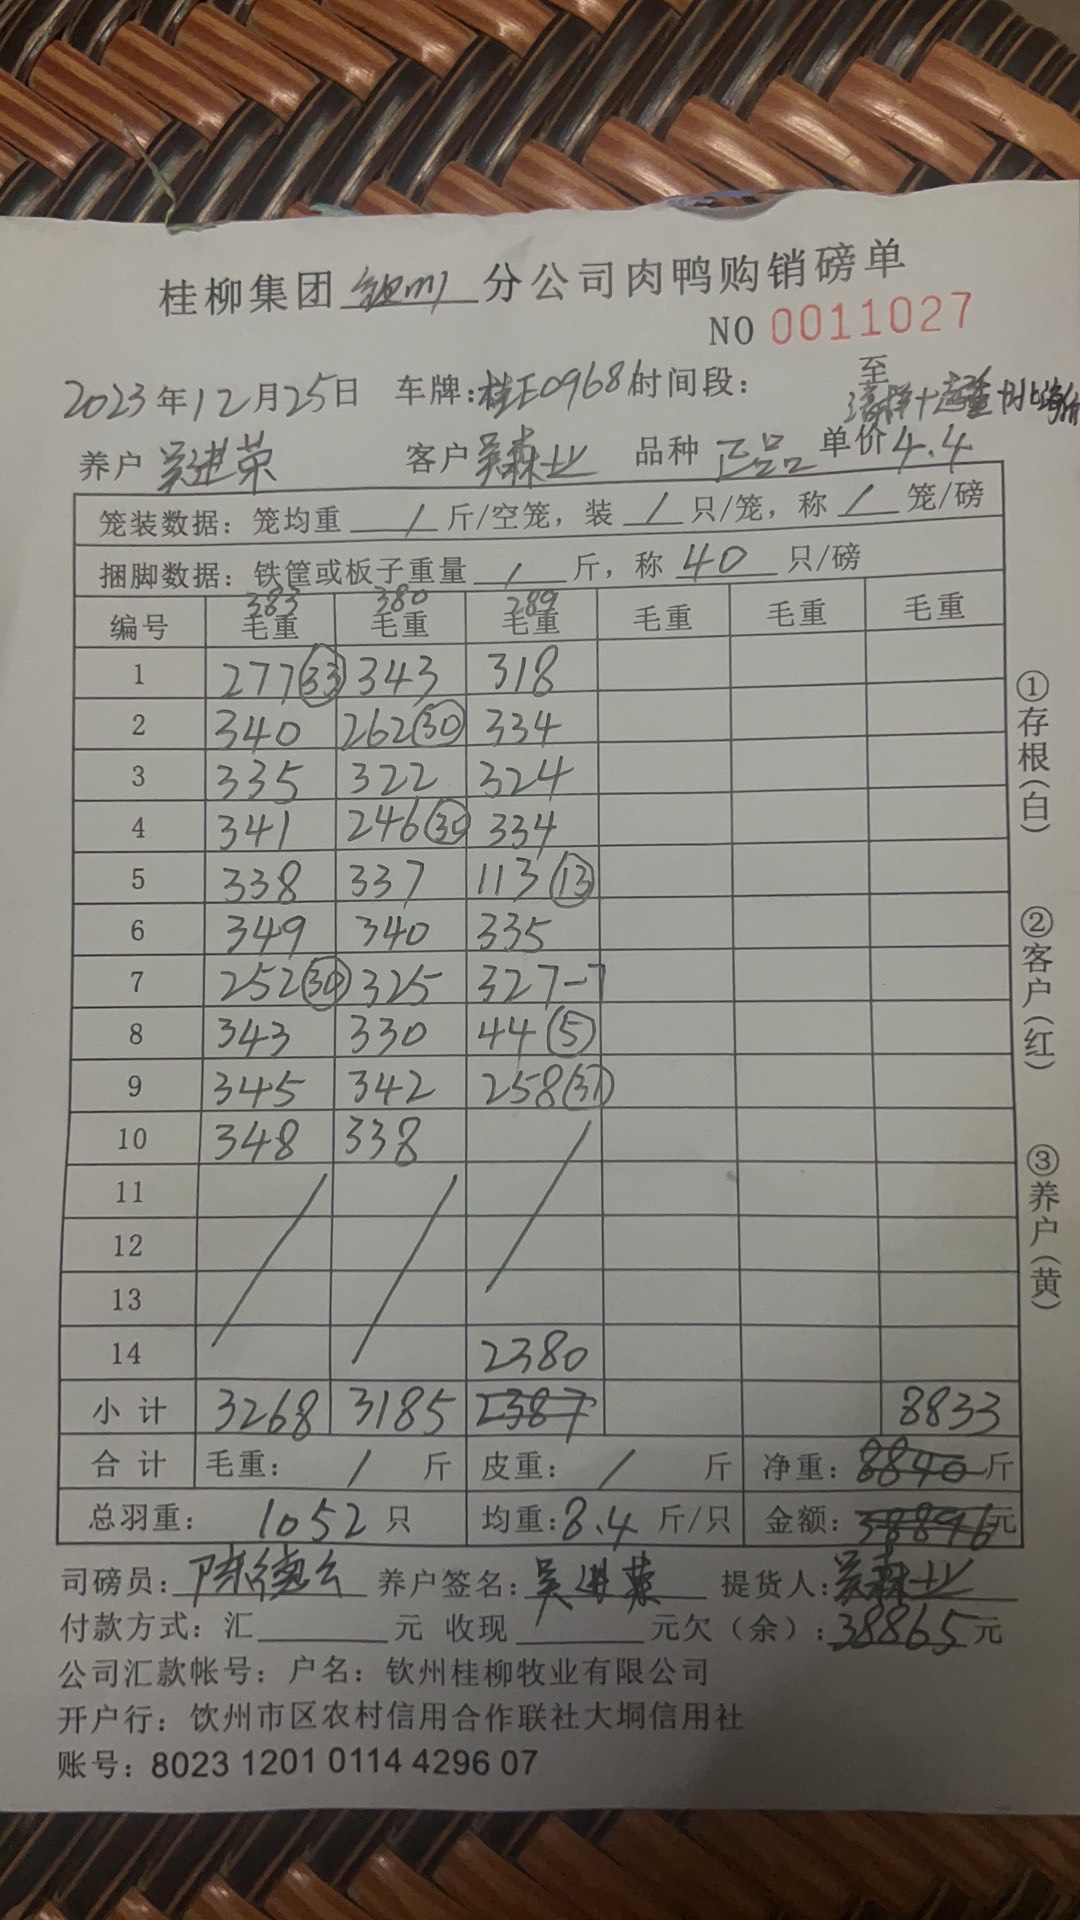 桂柳集团 钦州 分公司肉鸭购销磅单
NO 0011027
2023年12月25日 车牌:桂E09681时间段: 至
养户 吴进荣 客户 吴森业 品种 正品 单价4.4
笼装数据: 笼均重 / 斤/空笼, 装 / 只/笼, 称 / 笼/磅
捆脚数据: 铁筐或板子重量 / 斤, 称 40 只/磅
383 380 289
编号 毛重 毛重 毛重 毛重 毛重 毛重
1 277(33) 343 318
2 340 262(30) 334
3 335 322 324
4 341 246(30) 334
5 338 337 113(13)
6 349 340 335
7 252(30) 325 327-7
8 343 330 44(5)
9 345 342 258(31)
10 348 338
11
12
13
14 2380
小计 3268 3185 2387 8833
合计 毛重: / 斤 皮重: / 斤 净重: 8840斤
总羽重: 1052 只 均重: 8.4 斤/只 金额: 38896元
司磅员: 养户签名: 吴进荣 提货人: 吴森业
付款方式: 汇 元 收现 元欠(余): 38865元
公司汇款帐号: 户名: 钦州桂柳牧业有限公司
开户行: 钦州市区农村信用合作联社大垌信用社
账号: 8023 1201 0114 4296 07
①存根(白)
②客户(红)
③养户(黄)